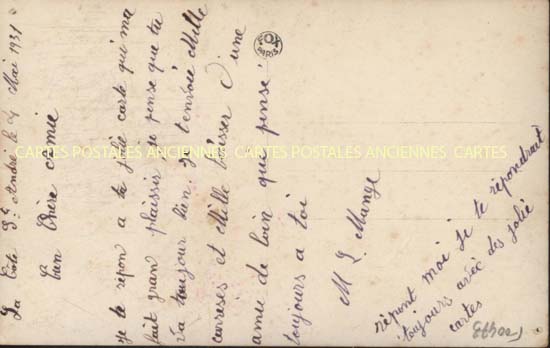 La Cote St André le 4 Mai 1931
bien chère amie
Je te repon a ta jolie carte qui ma
fait gran plaissir je pense que tu
va toujour bien je t'envoié Mille
caresses et Mille baisser d'une
amie de loin qui pensé
toujours a toi
M L. Mange
répont moi je te répondrait
toujours avec des jolie
cartes
FOX
PARIS
CARTES POSTALES ANCIENNES CARTES POSTALES ANCIENNES CARTES